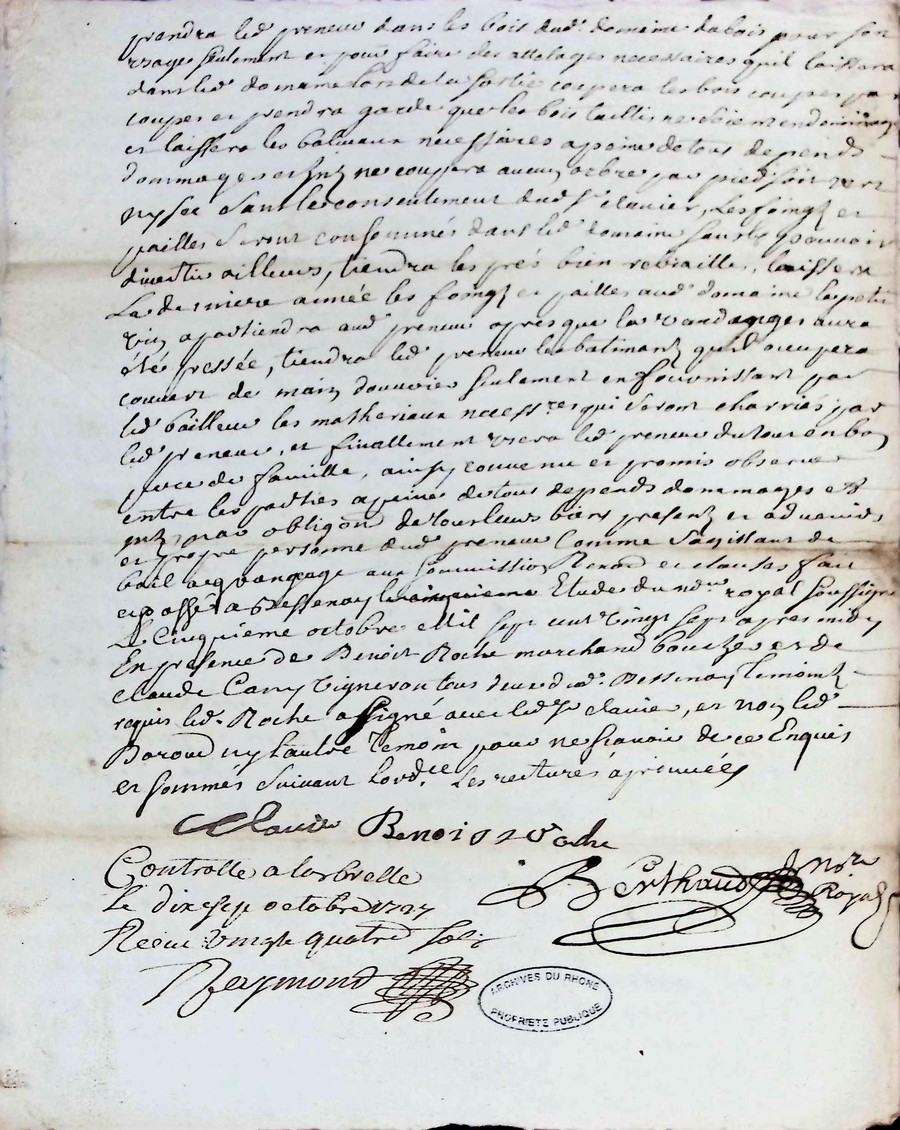 prendra led preneur dans les bois dud. domaine du bois pour son
usage seulement et pour faire des attelages necessaires quil laissera
dans led domaine lors de la sortie coupera les bois coupes par
coupes et prendra garde que les bois taillis ne soient endommagé
et laissera les baliveaux necessaires a peine de tous depends
dommages et ne coupera aucun arbre par pied soit vert
ny sec sans le consentement dud Sr clavier, Les foings et
pailles seront consommés dans led domaine sans les pouvoir
divertir ailleurs, tiendra les prés bien rebraillés, laissera
La derniere année les foings et pailles aud domaine le petit
vin apartiendra aud preneur apres que la vandange aura
été pressée, tiendra led preneur les batimants quil occupera
couvert de main douvrier seulement en fournissant par
led bailleur les matheriaux necessres qui seront charriés par
led preneur, et finallement usera led preneur du tout en bon
pere de famille, ainsy convenu et promis observer
entre les parties a peine de tous depends dommages et
par obligon de tous leurs biens presents et advenirs
et propre personne dud preneur Comme sagissant de
bail a grangeage aux soumissions Renond et clauses fait
et passé a Bessenay Etude du nore royal soussigné
Le Cinquieme octobre Mil sept cent vingt sept apres midy
En presence de Benoit Roche marchand boucher et de
Claude Cany vigneron tous deux dud. Bessenay temoins
requis led. Roche a signé avec led Sr clavier, et non led
Baroud ny lautre temoin pour ne scavoir de ce Enquis
et sommés suivant lordce Les ratures aprouvées
Clavier Benoist Roche
Controlle a larbrelle
Berthaud Nore Royal
Le dix sept octobre 1727
Receu vingt quatre sols
Reymond
ARCHIVES DU RHONE
PROPRIETE PUBLIQUE